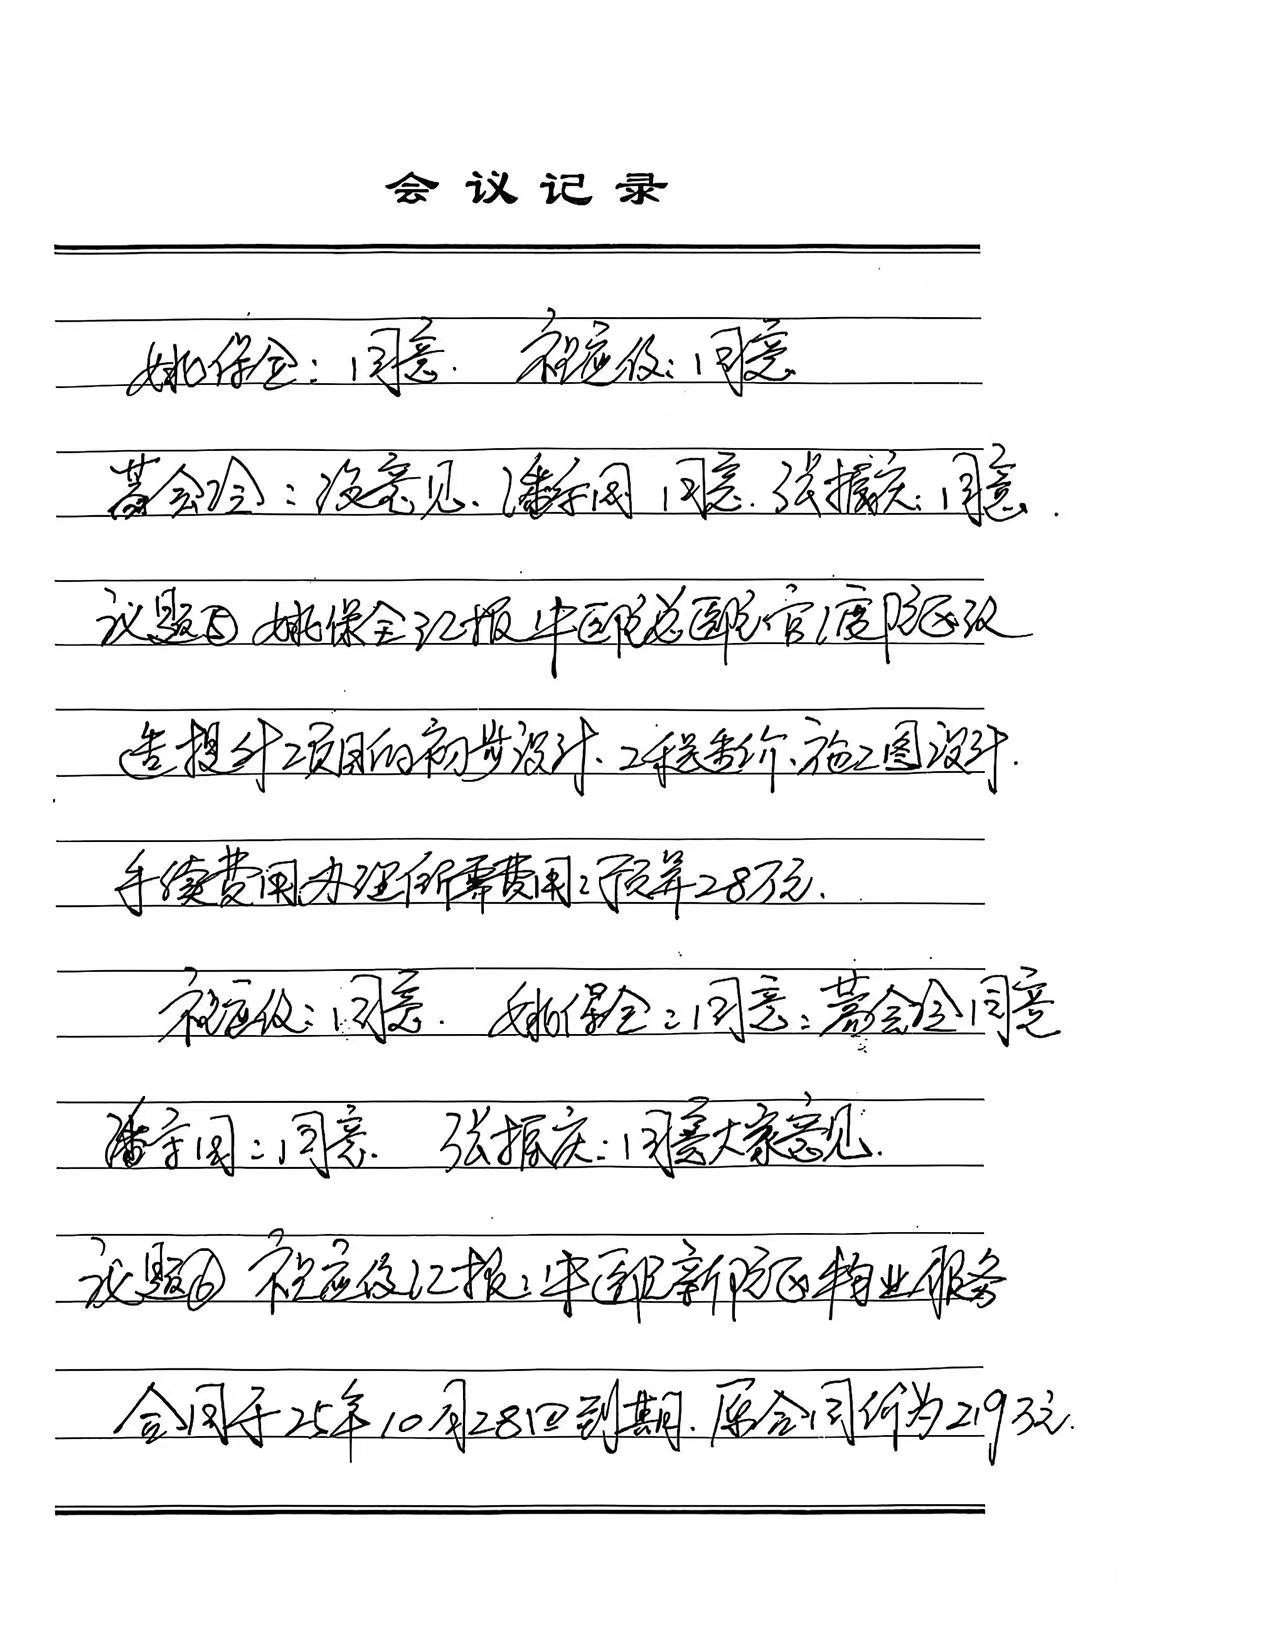 会议记录
姚保全：同意． 祝应俊：同意
慕会玲：没意见．潘守国 同意．张振庆：同意．
议题⑤ 姚保全汇报中医院总医院官渡院区改
造提升项目的初步设计、工程造价、施工图设计．
手续费用办理所需费用：预算28万元．
祝应俊：同意． 姚保全：同意：慕会玲同意
潘守国：同意． 张振庆：同意大家意见．
议题⑥ 祝应俊汇报：中医院新院区物业服务
合同于25年10月28日到期．原合同价为219万元．